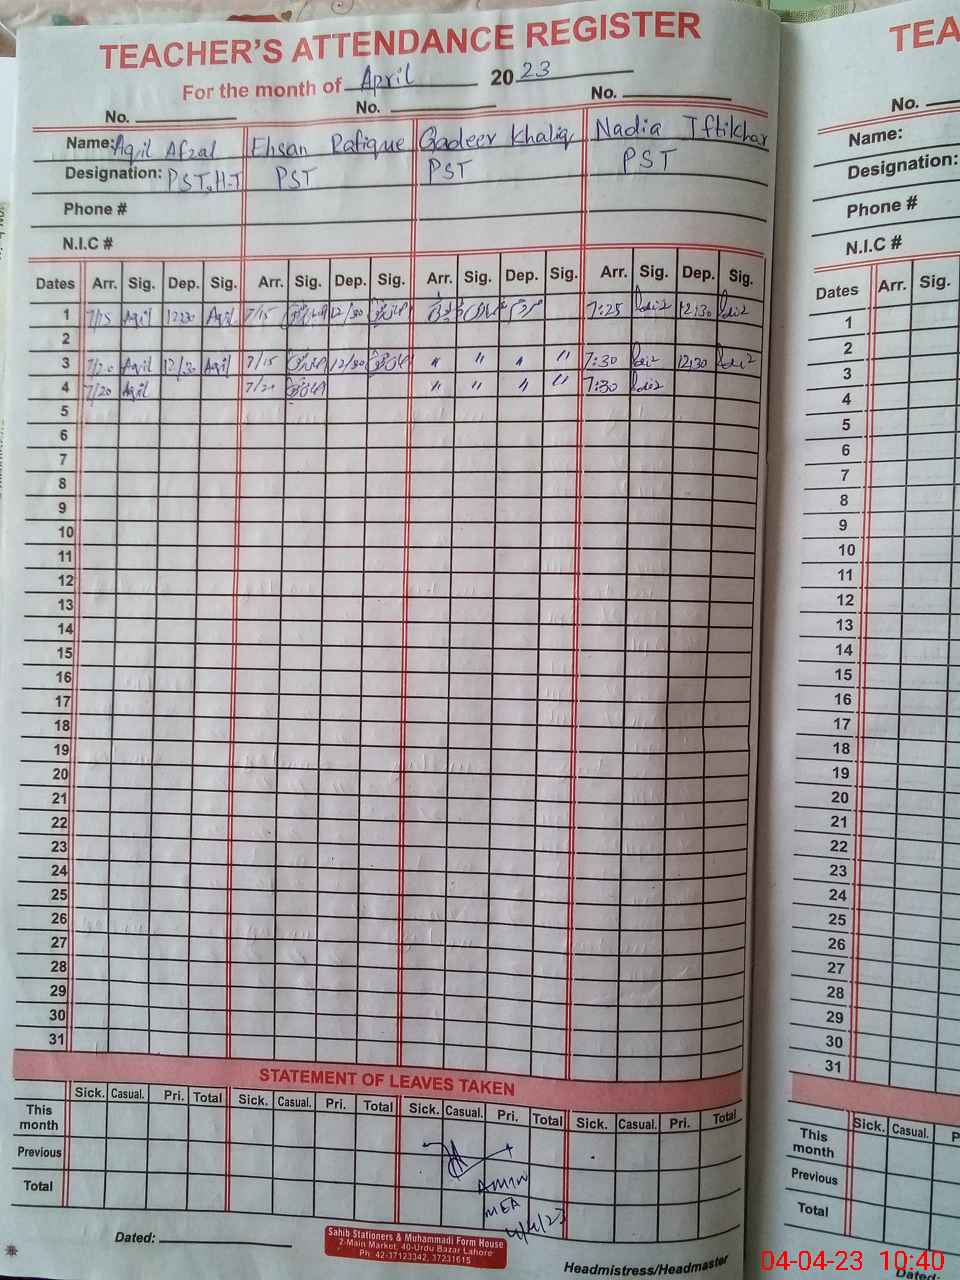 TEACHER'S ATTENDANCE REGISTER
For the month of April 2023
No. No. No.
Name: Aqil Afzal Ehsan Rafique Qadeer Khaliq Nadia Iftikhar
Designation: PST, H-T PST PST PST
Phone #
N.I.C #
Dates Arr. Sig. Dep. Sig. Arr. Sig. Dep. Sig. Arr. Sig. Dep. Sig. Arr. Sig. Dep. Sig.
1 7/15 Aqil 12:30 Aqil 7/15 12/30 7:25 12:30
2
3 7/20 Aqil 12/30 Aqil 7/15 12/30 " " " " 7:30 12:30
4 7/20 Aqil 7/20 " " " " 7:30
5
6
7
8
9
10
11
12
13
14
15
16
17
18
19
20
21
22
23
24
25
26
27
28
29
30
31
STATEMENT OF LEAVES TAKEN
Sick. Casual. Pri. Total Sick. Casual. Pri. Total Sick. Casual. Pri. Total Sick. Casual. Pri. Total
This month
Previous
Total
AMIN
MEA
4/4/23
Dated:
Sahib Stationers & Muhammadi Form House
2-Main Market, 40-Urdu Bazar Lahore
Ph: 42-37123342, 37231615
Headmistress/Headmaster
TEA
No.
Name:
Designation:
Phone #
N.I.C #
Dates Arr. Sig.
1
2
3
4
5
6
7
8
9
10
11
12
13
14
15
16
17
18
19
20
21
22
23
24
25
26
27
28
29
30
31
Sick. Casual. P
This month
Previous
Total
Dated:
04-04-23 10:40